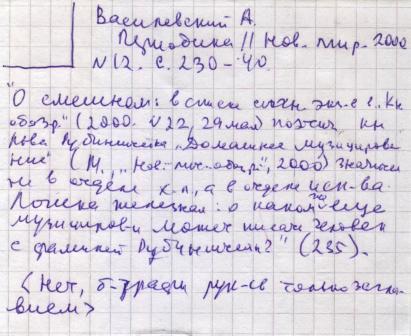 Василевский А.
Периодика // Нов. мир. 2000
N 12. С. 230-40.
"О смешном: в списке сдан. экз-в в "Кн
обозр." (2000. N 22, 29 мая) поэтич. кн
Льва Рубинштейна "Домашнее музицирова
ние" (М., "Нов. лит. обозр.", 2000) значится
не в отделе х. л., а в отделе иск-ва.
Логика железная: о каком же еще
музицировании может писать человек
с фамилией Рубинштейн?" (235).
<Нет, б-графы рук-сь только заглавием>